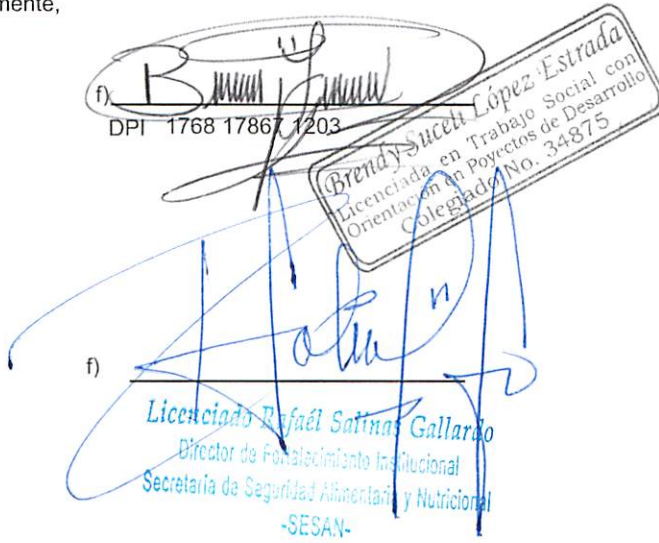 mente,
f)
DPI 1768 17867 1203
Brendy Sucelt López Estrada
Licenciada en Trabajo Social con
Orientación en Poyectos de Desarrollo
Colegiado No. 34875
f)
Licenciado Rafaél Salinas Gallardo
Director de Fortalecimiento Institucional
Secretaria de Seguridad Alimentaria y Nutricional
-SESAN-